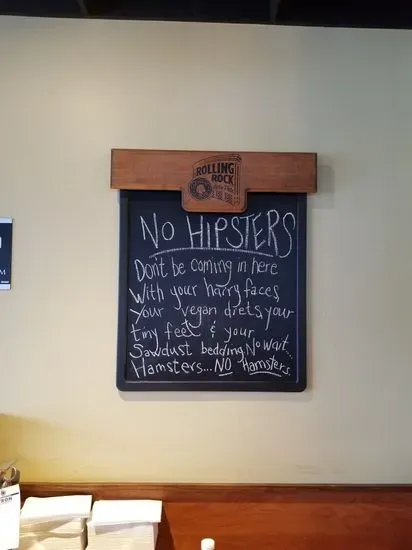 ROLLING
ROCK
NO HIPSTERS
Dont be coming in here
With your hairy faces,
Your vegan diets, your
tiny feet & your
Sawdust bedding. No wait...
Hamsters... NO Hamsters.